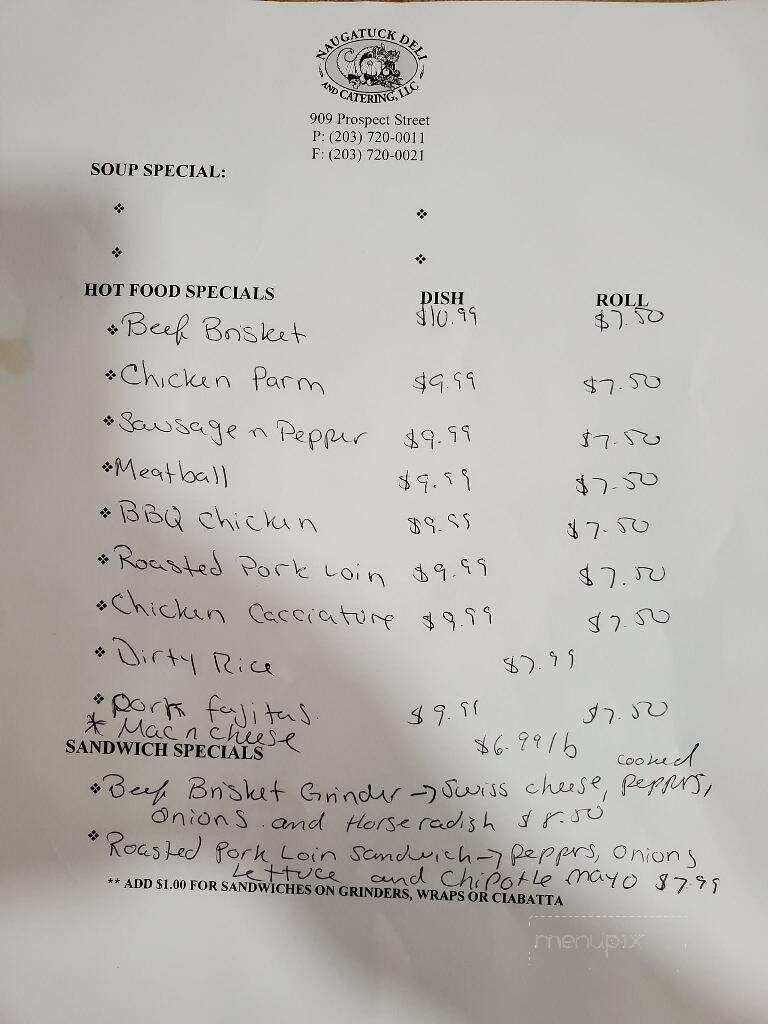 NAUGATUCK DELI
AND CATERING, LLC
909 Prospect Street
P: (203) 720-0011
F: (203) 720-0021
SOUP SPECIAL:
HOT FOOD SPECIALS DISH ROLL
❖ Beef Brisket $10.99 $7.50
❖ Chicken Parm $9.99 $7.50
❖ Sausage n Pepper $9.99 $7.50
❖ Meatball $9.99 $7.50
❖ BBQ Chicken $9.99 $7.50
❖ Roasted Pork Loin $9.99 $7.50
❖ Chicken Cacciature $9.99 $7.50
❖ Dirty Rice $7.99
❖ Pork fajitas. $9.99 $7.50
* Mac n cheese $6.99/lb
SANDWICH SPECIALS
❖ Beef Brisket Grinder → Swiss cheese, cooked peppers,
onions and Horseradish $8.50
❖ Roasted Pork Loin Sandwich → peppers, onions
Lettuce and Chipotle mayo $7.99
** ADD $1.00 FOR SANDWICHES ON GRINDERS, WRAPS OR CIABATTA
menupix